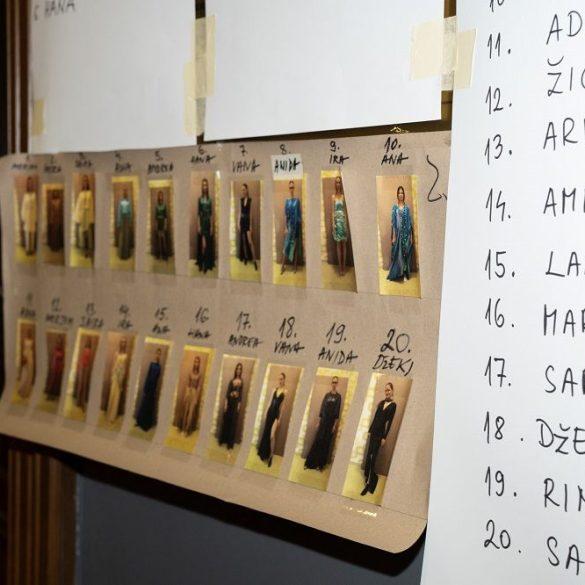 6 HANA
5. ANDREA
6. HANA
7. VANA
8. ANIDA
9. IRA
10. ANA
12. MERJEM
13. ZAIRA
14. IRA
15. ANA
16. HANA
17. ANDREA
18. VANA
19. ANIDA
20. DŽEKI
10
11. AD
12. ŽIC
13. AR
14. AM
15. LA
16. MAR
17. SA
18. DŽE
19. RI
20. SA